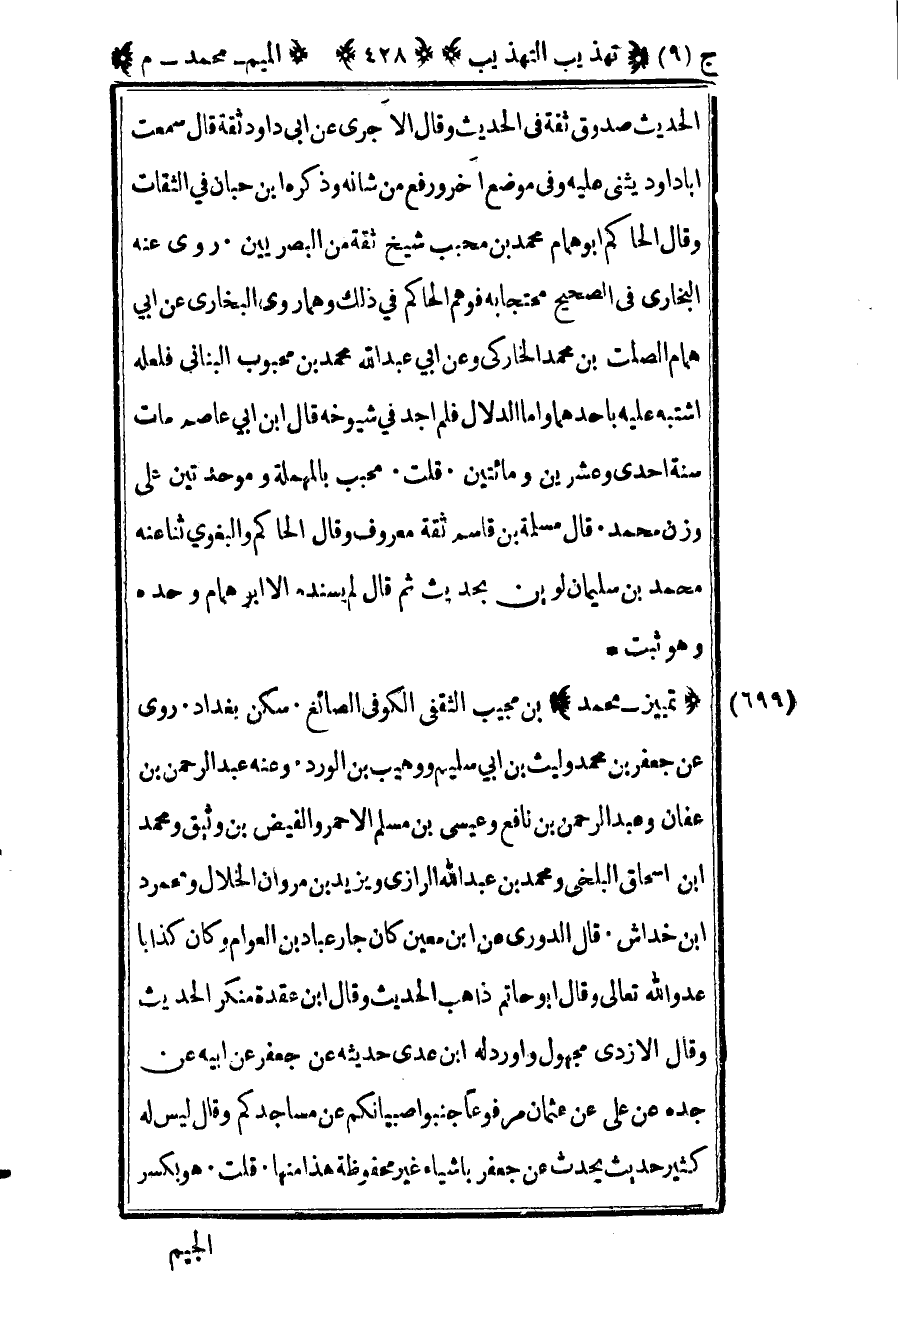 ج (٩) ﴿ تهذيب التهذيب ﴾ ﴿ ٤٢٨ ﴾ ﴿ الميم ـ محمد ـ م ﴾
الحديث صدوق ثقة فى الحديث وقال الآجرى عن ابى داود ثقة قال سمعت
اباداود يثنى عليه وفى موضع آخر ورفع من شانه وذكره ابن حبان في الثقات
وقال الحاكم ابوهمام محمد بن محبب شيخ ثقة من البصريين ٠ روى عنه
البخارى فى الصحيح محتجا به فوهم الحاكم في ذلك وهما روى البخارى عن ابي
همام الصلت بن محمد الخاركى وعن ابي عبد الله محمد بن محبوب البنانى فلعله
اشتبه عليه باحدهما واما الدلال فلم اجد في شيوخه قال ابن ابي عاصم مات
سنة احدى وعشرين و مائتين ٠ قلت ٠ محبب بالمهملة و موحدتين على
وزن محمد ٠ قال مسلمة بن قاسم ثقة معروف وقال الحاكم والبغوي ثنا عنه
محمد بن سليمان لوين بحديث ثم قال لم يسنده الا ابو همام وحده
وهو ثبت *
(٦٩٩) ﴿ تمييز ـ محمد ﴾ بن مجيب الثقفى الكوفى الصائغ ٠ سكن بغداد ٠ روى
عن جعفر بن محمد وليث بن ابي سليم ووهيب بن الورد ٠ وعنه عبد الرحمن بن
عفان وعبد الرحمن بن نافع وعيسى بن مسلم الاحمر والفيض بن وثيق ومحمد
ابن اسحاق البلخى ومحمد بن عبد الله الرازى ويزيد بن مروان الخلال ومحمود
ابن خداش ٠ قال الدورى عن ابن معين كان جار عباد بن العوام وكان كذابا
عدو الله تعالى وقال ابو حاتم ذاهب الحديث وقال ابن عقدة منكر الحديث
وقال الازدى مجهول واورد له ابن عدى حديثه عن جعفر عن ابيه عن
جده عن على عن عثمان مرفوعاً جنبوا صبيانكم عن مساجدكم وقال ليس له
كثير حديث يحدث عن جعفر باشياء غير محفوظة هذا منها ٠ قلت ٠ هو بكسر
الجيم